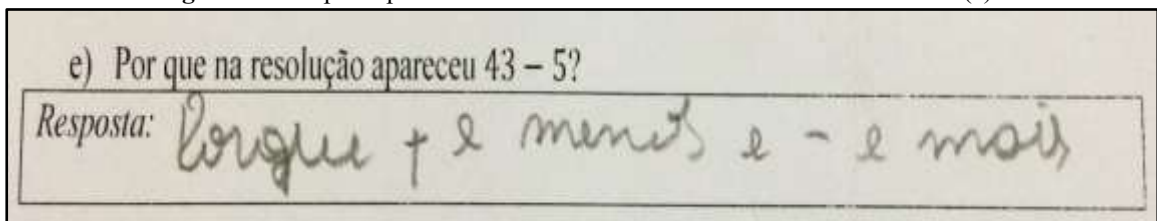 e) Por que na resolução apareceu 43 – 5?
Resposta: Porque + e menos e - e mais